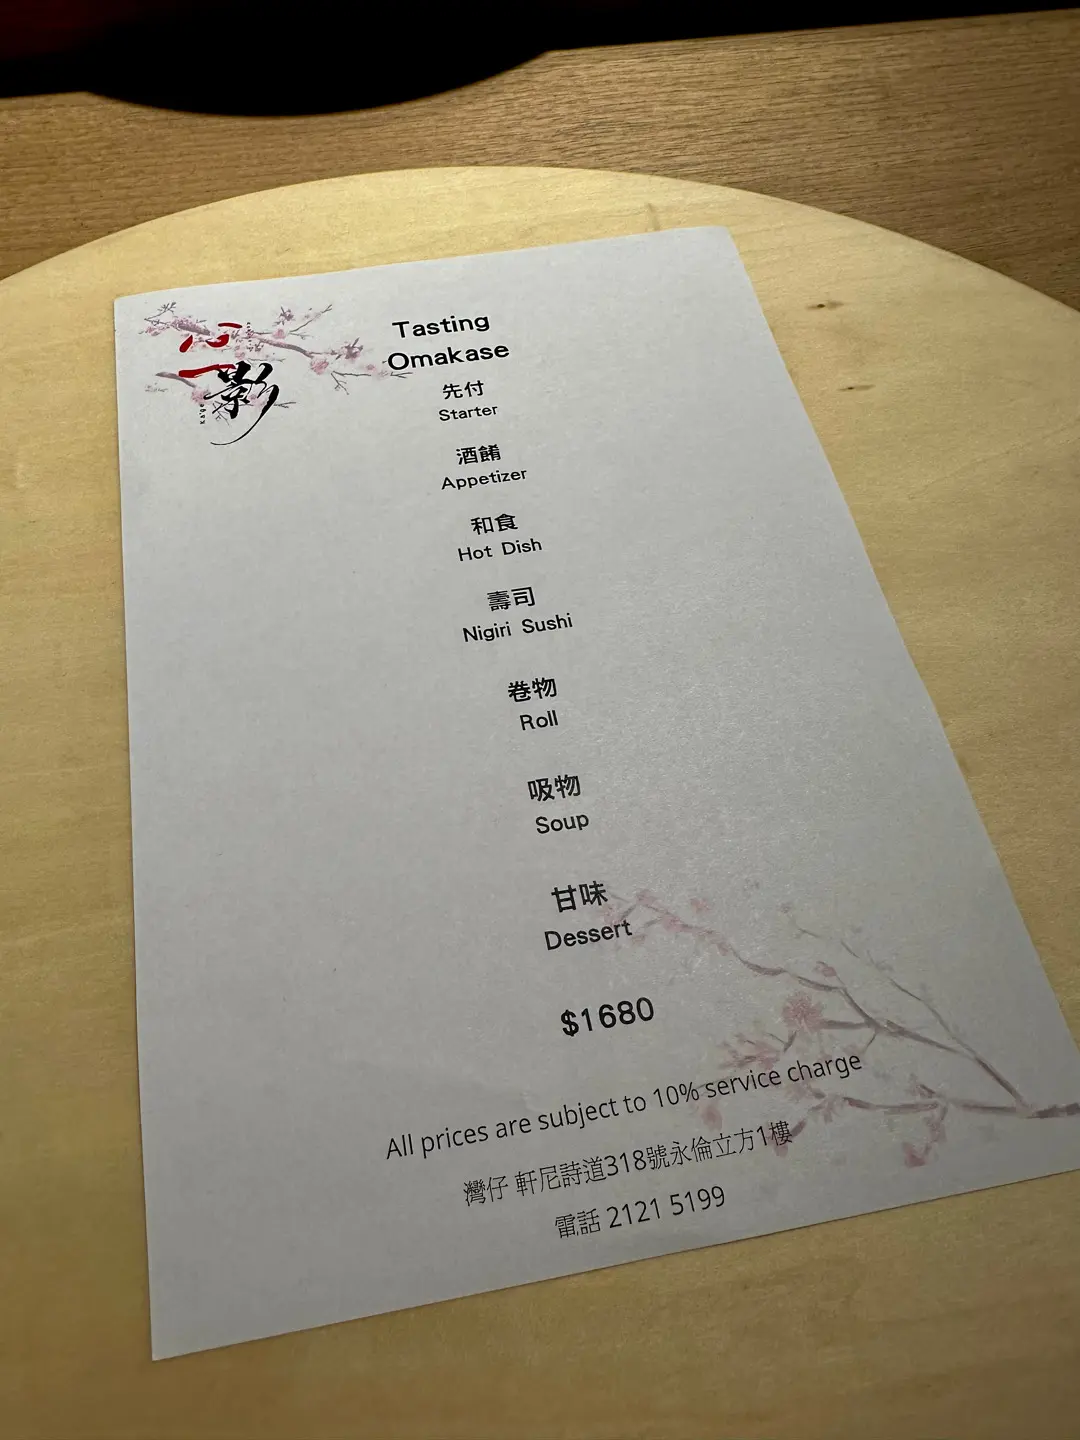 心一
影
Kage
Tasting
Omakase
先付
Starter
酒餚
Appetizer
和食
Hot Dish
壽司
Nigiri Sushi
卷物
Roll
吸物
Soup
甘味
Dessert
$1680
All prices are subject to 10% service charge
灣仔 軒尼詩道318號永倫立方1樓
電話 2121 5199